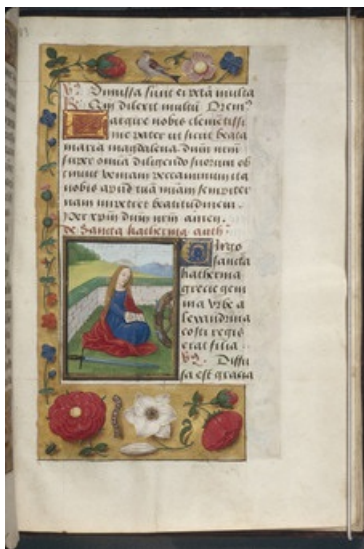 V. Dimissa sunt ei pctā multa
R. Qm dilexit multū Orem⁹
Largire nobis clemētissi
me pater ut sicut beata
maria magdalena dnūm nrm̄
super omīa diligendo suorum ob
tinuit veniam peccaminum ita
nobis apud tuā miam sempiter
nam impetret beatitudinem.
Per xpm̄ dnūm nrm̄ amen.
De sancta katherina anth
Virgo
sancta
katherina
grecie gem
ma vrbe a
lexandrina
costi regis
erat filia
V. Diffu
sa est gracia